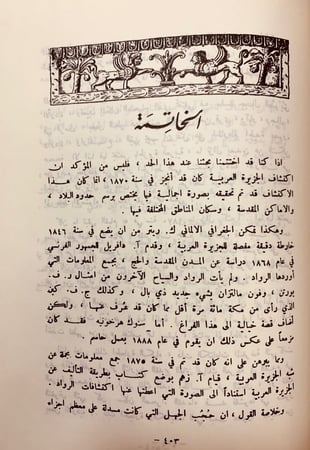 الخاتمة
اذا كنا قد اختتمنا بحثنا عند هذا الحد ، فليس من المؤكد ان
اكتشاف الجزيرة العربية كان قد أنجز في سنة ١٨٧٠ ، انما كان هذا
الاكتشاف قد تم تحقيقه بصورة اجمالية فيما يختص برسم حدود البلاد ،
والاماكن المقدسة ، وسكان المناطق المختلفة فيها .
وهكذا تمكن الجغرافي الالماني ك. ريتر من ان يضع في سنة ١٨٤٦
خارطة دقيقة مفصلة للجزيرة العربية ، وقدم آ. دافريل الجمهور الفرنسي
في عام ١٨٦٨ دراسة عن المدن المقدسة والحج ، بجميع المعلومات التي
أوردها الرواد . ولم يأت الرواد والسياح الآخرون من امثال ر. ف.
بورتن ، وفون مالتزان بشيء جديد ذي بال ، وكذلك ج. ف. كين
الذي رأى من مكة مائة مرة أقل مما كان قد عُرف عنها ، ولكن
أضاف قصة خيالية الى هذا الفراغ . أما سنوك هرخونيه فقد كان
مزمعاً على عكس ذلك ان يقوم في عام ١٨٨٨ بعمل حاسم .
ومما يبرهن على انه كان قد تم في سنة ١٨٧٥ جمع معلومات جمة عن
شبه الجزيرة العربية ، قيام آ. زهم بوضع كتاب بطريقة التأليف عن
الجزيرة العربية استناداً الى الصورة التي اعطتها عنها اكتشافات الرواد .
وخلاصة القول ، ان حُجُب الجهل التي كانت مسدلة على معظم اجزاء
- ٤٠٣ -